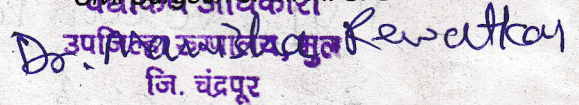 वैद्यकिय अधिकारी
उपजिल्हा रुग्णालय, मुल
Dr. Rewatkar
जि. चंद्रपूर